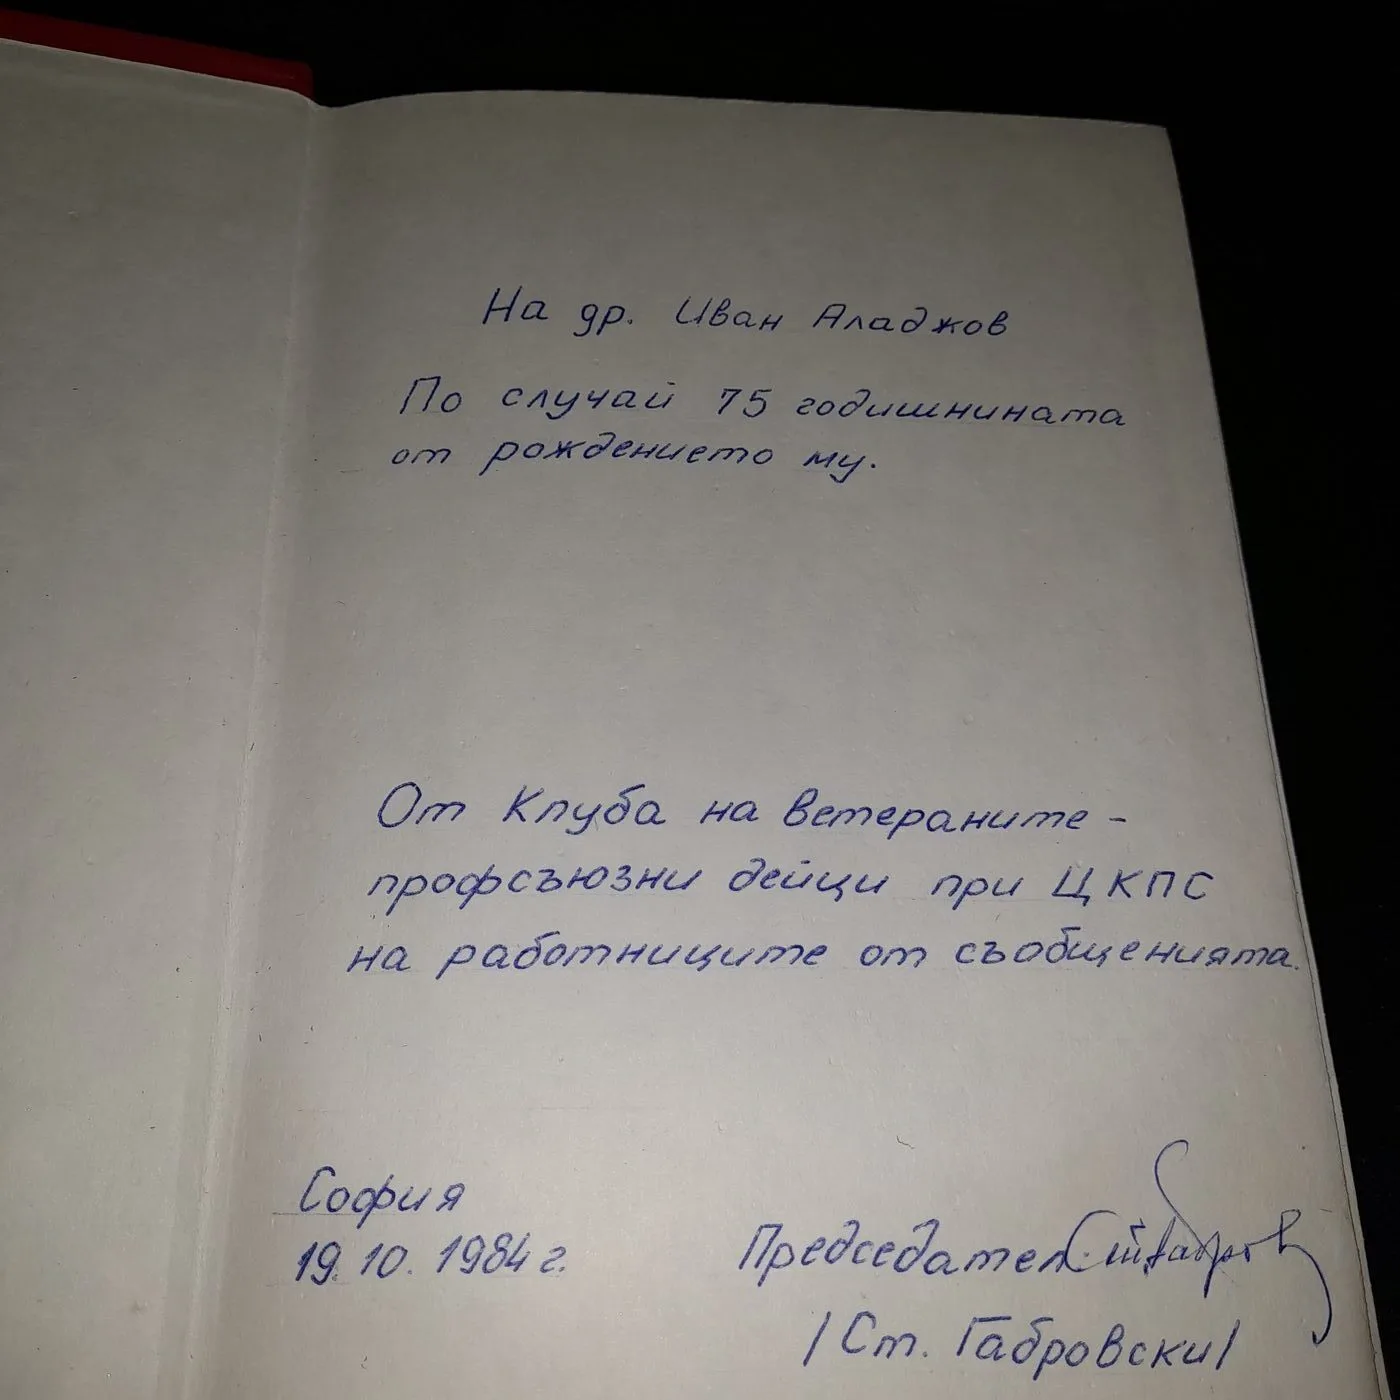 На др. Иван Аладжов
По случай 75 годишнината
от рождението му.
От Клуба на ветераните -
профсъюзни дейци при ЦКПС
на работниците от съобщенията.
София
19.10.1984 г.
Председател:
/Ст. Габровски/